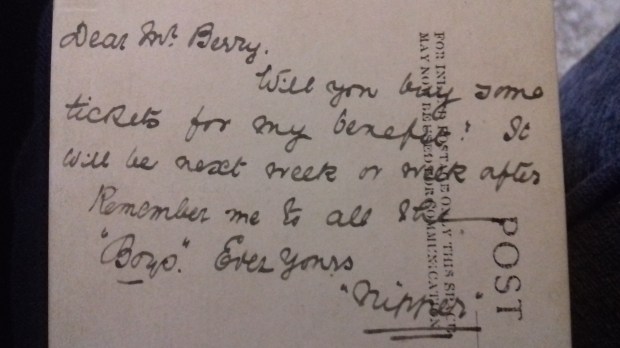 Dear Mr. Berry.
Will you buy some
tickets for my benefit? It
will be next week or week after
Remember me to all the
"Boys". Ever yours
"Nipper"
POST
FOR INLAND POSTAGE ONLY THIS SPACE
MAY NOW BE USED FOR COMMUNICATION